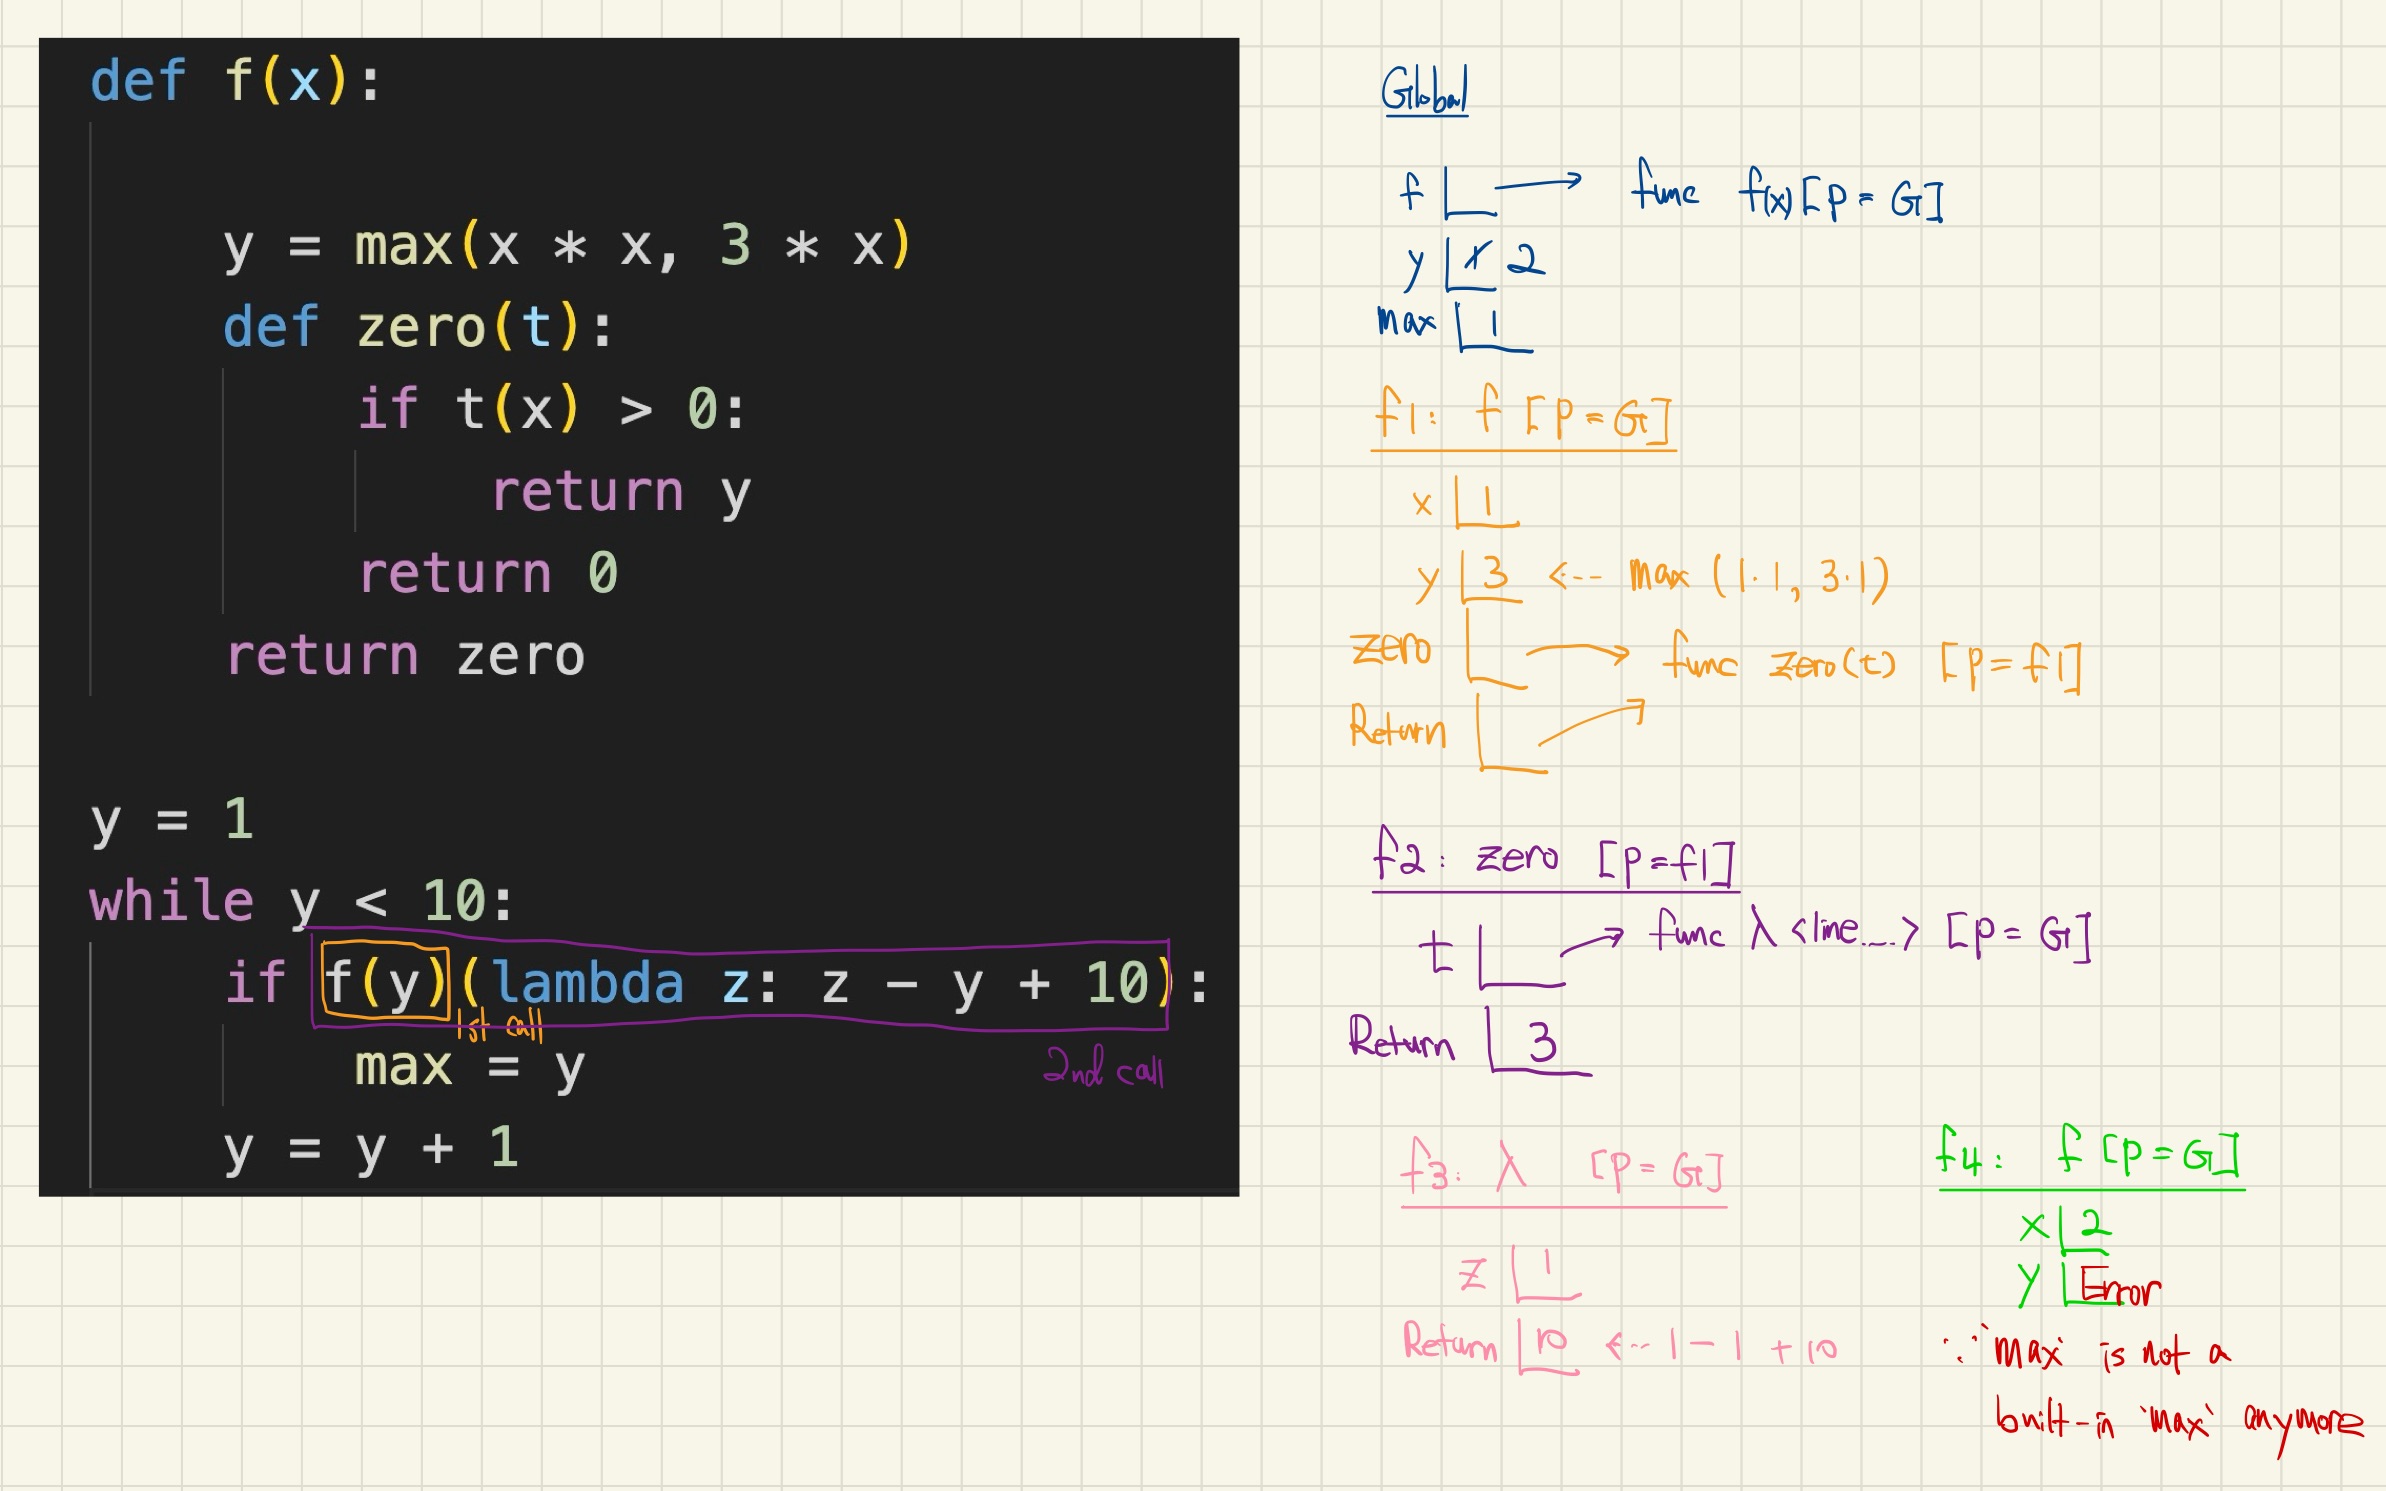 def f(x):
y = max(x * x, 3 * x)
def zero(t):
if t(x) > 0:
return y
return 0
return zero
y = 1
while y < 10:
if f(y)(lambda z: z - y + 10):
1st call
max = y
2nd call
y = y + 1
Global
f → func f(x) [P = G]
y 1 2
max 1
f1: f [P = G]
x 1
y 3 <-- max (1·1, 3·1)
zero → func zero(t) [P = f1]
Return
f2: zero [P = f1]
t → func λ <line...> [P = G]
Return 3
f3: λ [P = G]
z 1
Return 10 <-- 1 - 1 + 10
f4: f [P = G]
x 2
y Error
∵ `max` is not a
built-in `max` anymore